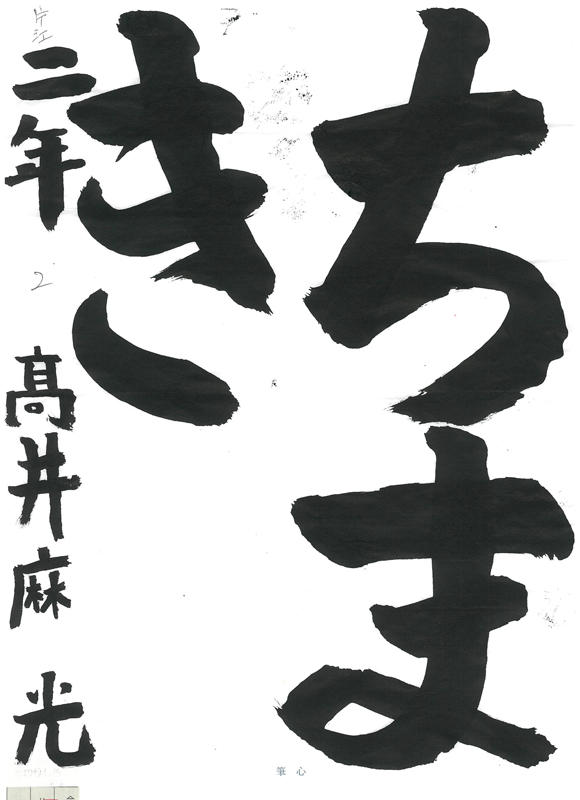 ちま
き
片江
二年
2
髙井麻光
筆心